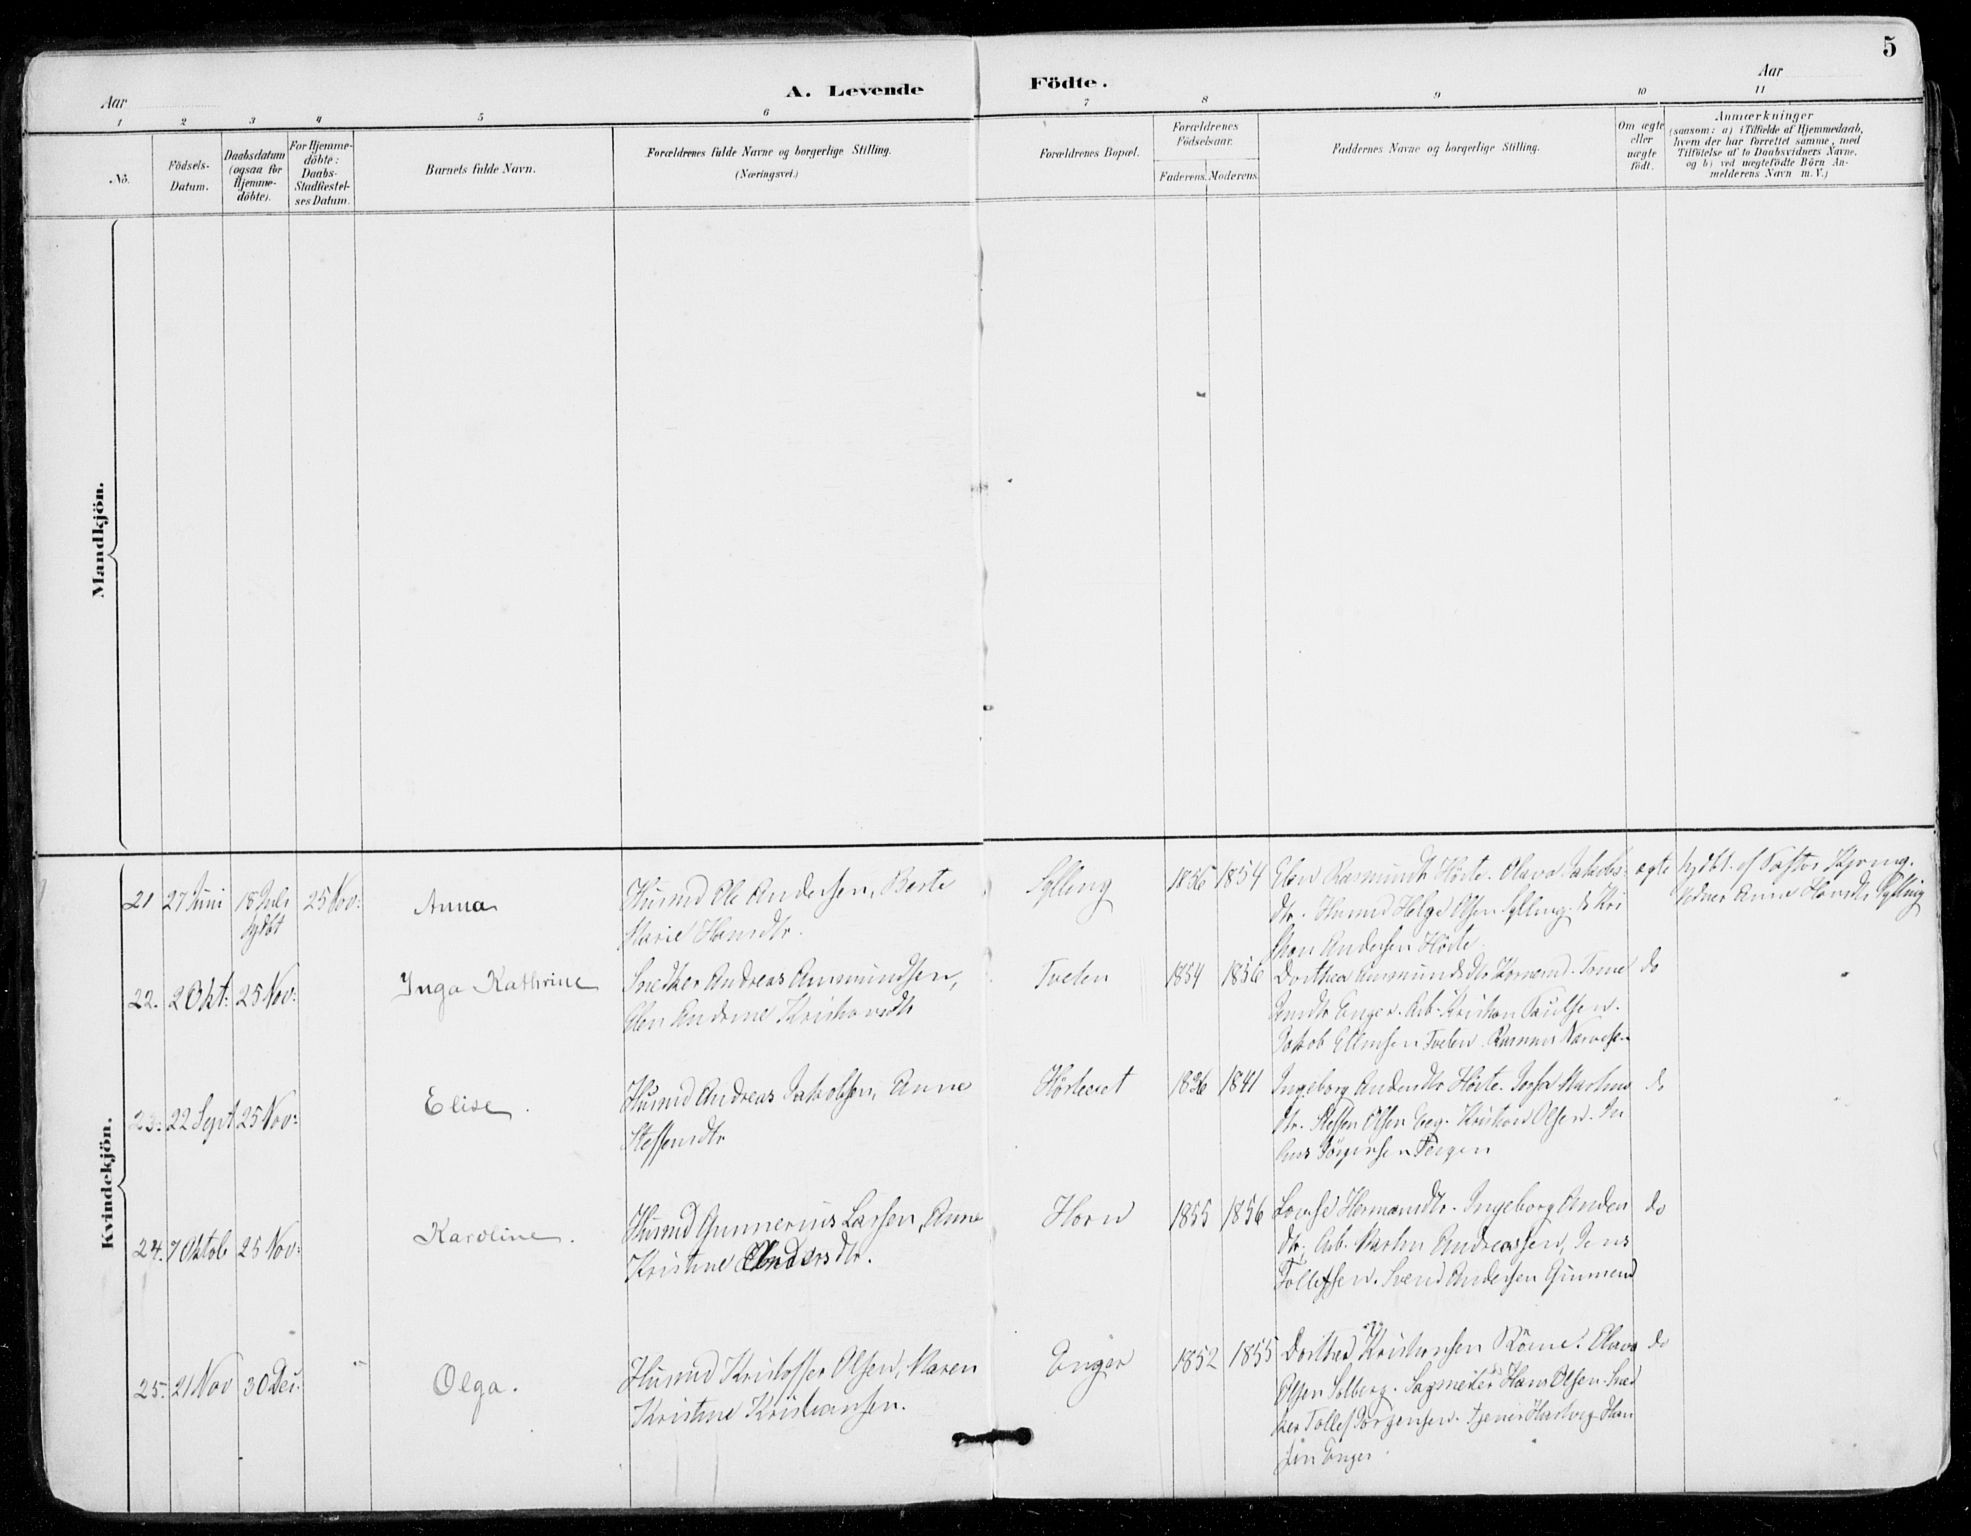 5
Aar
A. Levende
Födte.
Aar
1 2 3 4 5 6 7 8 9 10 11
No.
Födsels-
Datum.
Daabsdatum
(ogsaa for
Hjemme-
döbte).
For Hjemme-
döbte:
Daabs-
Stadfæstel-
ses Datum.
Barnets fulde Navn.
Forældrenes fulde Navne og borgerlige Stilling.
(Næringsvei.)
Forældrenes Bopæl.
Forældrenes
Födselsaar.
Faderens. Moderens.
Faddernes Navne og borgerlige Stilling.
Om ægte
eller
uægte
födt.
Anmærkninger
(saasom: a) i Tilfælde af Hjemmedaab,
hvem der har forrettet samme, med
Tilföielse af to Daabsvidners Navne,
og b) ved uægtefödte Börn An-
melderens Navn m. V.)
Mandkjön.
Kvindekjön.
21 27 Juni 15 Juli 25 Nov:
hjdbt
Anna
Husmd Ole Andersen, Berte
Marie Hansdtr.
Sylling
1856 1854
Elen Rasmusdtr Hörte. Olava Jakobs
dtr. Husmd Helge Olsen Sylling.
Andersen Hörte
ægte
hjdbt. af Pastor
Anne Sylling
22. 2 Okt: 25 Nov:
Inga Kathrine
Snedker Andreas Ammundsen,
Elen Andrine Kristiansdtr
Tveten
1854 1856
Dorthea Ammundsdtr
Enger. Arb. Kristian Paulsen.
Jakob Tveten. Rasmus Narvesen
do
23. 22 Sept 25 Nov:
Elise.
Husmd Andreas Jakobsen, Anne
Steffensdtr
1836 1841
Ingeborg Andersdtr Hörte.
dtr. Steffen Olsen Kristian Olsen.
Jörgensen
do
24. 7 Oktob 25 Nov:
Karoline.
Husmd Gunnerius Larsen, Anne
Kristine Andersdtr.
Horn
1855 1856
Lovise Hermansdtr. Ingeborg Anders
dtr, Arb. Martin Andreassen, Jens
Tollefsen. Svend Andersen
do
25. 21 Nov 30 Des.
Olga.
Husmd Kristoffer Olsen, Maren
Kristine Kristiansen.
Enger
1852 1855
Dorthea Kristiansen Olava
Olsen Solberg. Hans Olsen. Sned
ker Tollef Jörgensen. Tjener Hartvig Han
sen Enger.
do